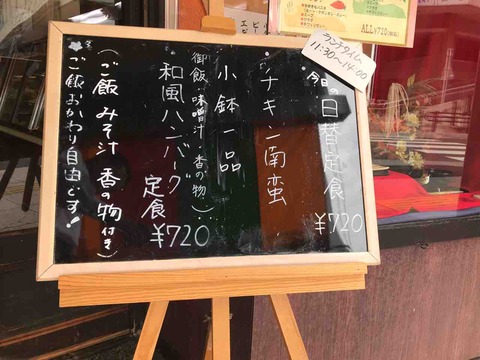 ランチタイム
11:30〜14:00
今日の日替定食
¥720
チキン南蛮
小鉢一品
(御飯・味噌汁 香の物)
和風ハンバーグ定食
¥720
(ご飯 みそ汁 香の物付き)
ご飯おかわり自由です!
ALL¥720